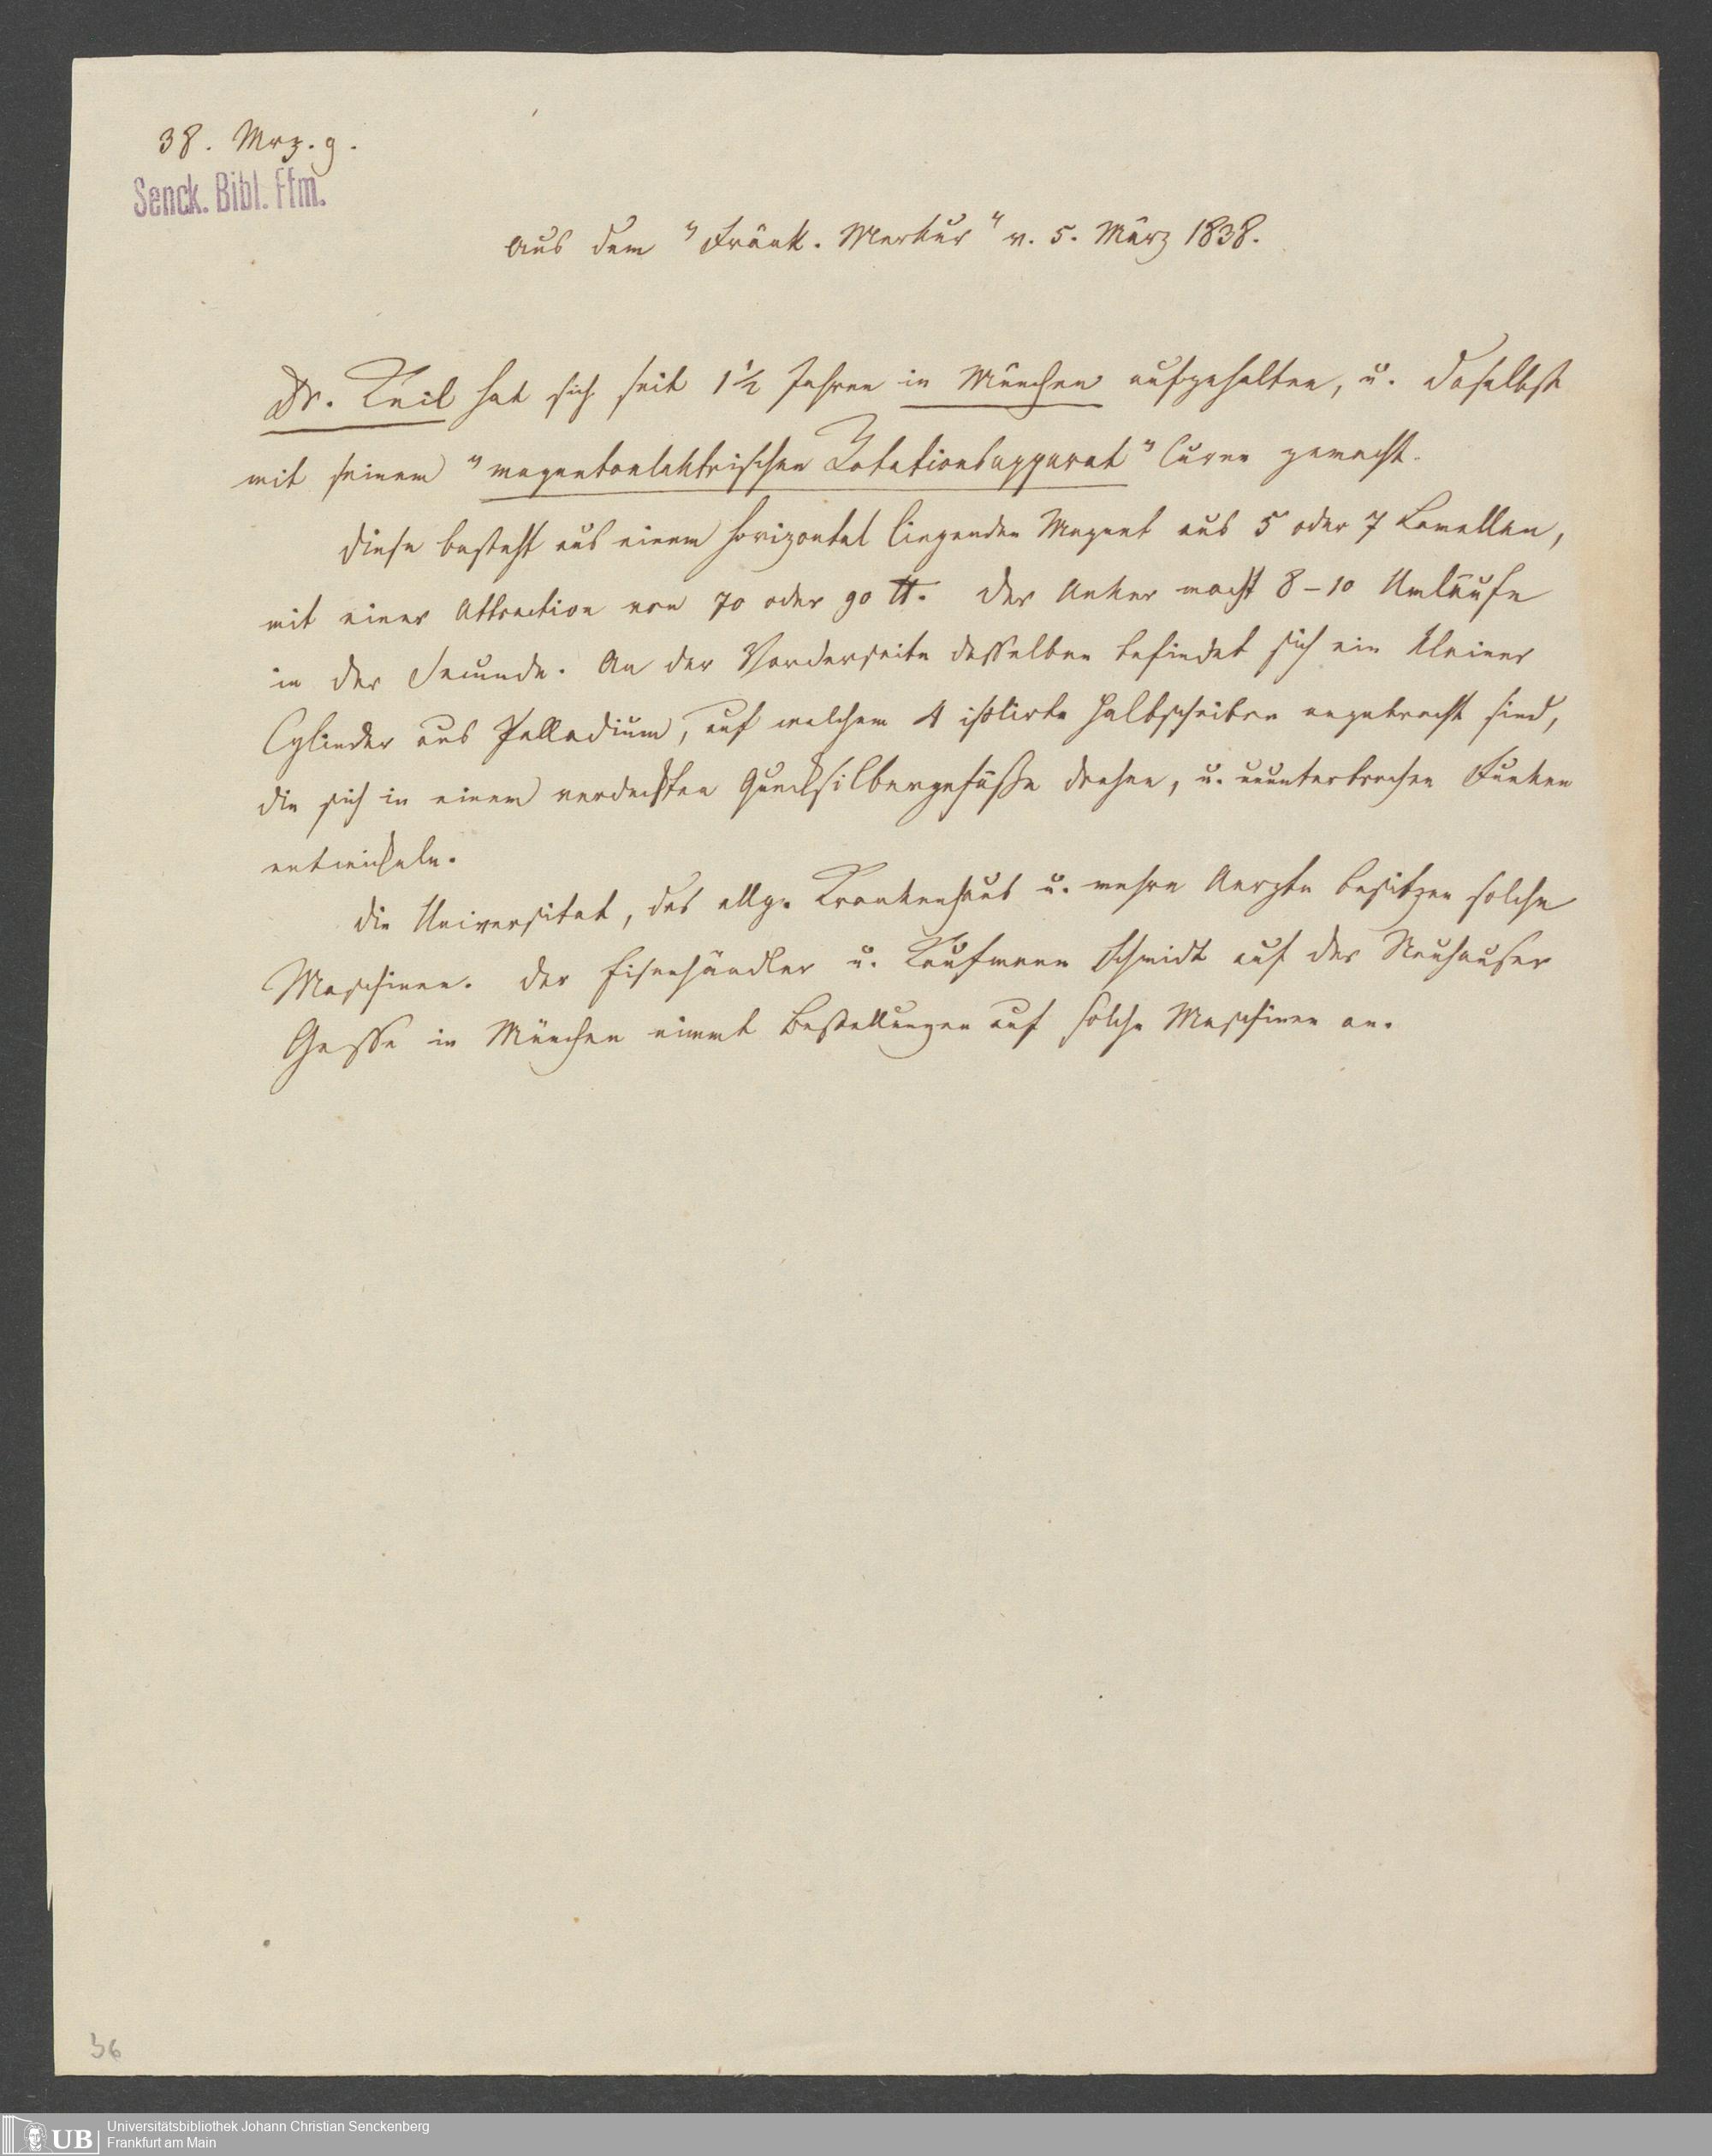 38. Mrz. 9.
Senck. Bibl. Ffm.
Aus dem "Fränk. Merkur" v. 5. März 1838.
Dr. Keil hat sich seit 1½ Jahren in München aufgehalten, u. daselbst
mit seinem "magnetoelektrischen Rotationsapparat" Curen gemacht.
Diese besteht aus einem horizontal liegenden Magnet aus 5 oder 7 Lamellen,
mit einer Attraction von 70 oder 90 ℔. Der Anker macht 8-10 Umläufe
in der Secunde. An der Vorderseite desselben befindet sich ein kleiner
Cylinder aus Palladium, auf welchem 4 isolirte Halbscheiben angebracht sind,
die sich in einem verdeckten Quecksilbergefäße drehen, u. ununterbrochen Funken
entwickeln.
Die Universitat, das allg. Krankenhaus u. mehre Aerzte besitzen solche
Maschinen. Der Eisenhändler u. Kaufmann Schmidt auf der Neuhauser
Gasse in München nimmt Bestellungen auf solche Maschinen an.
36
UB
Universitätsbibliothek Johann Christian Senckenberg
Frankfurt am Main